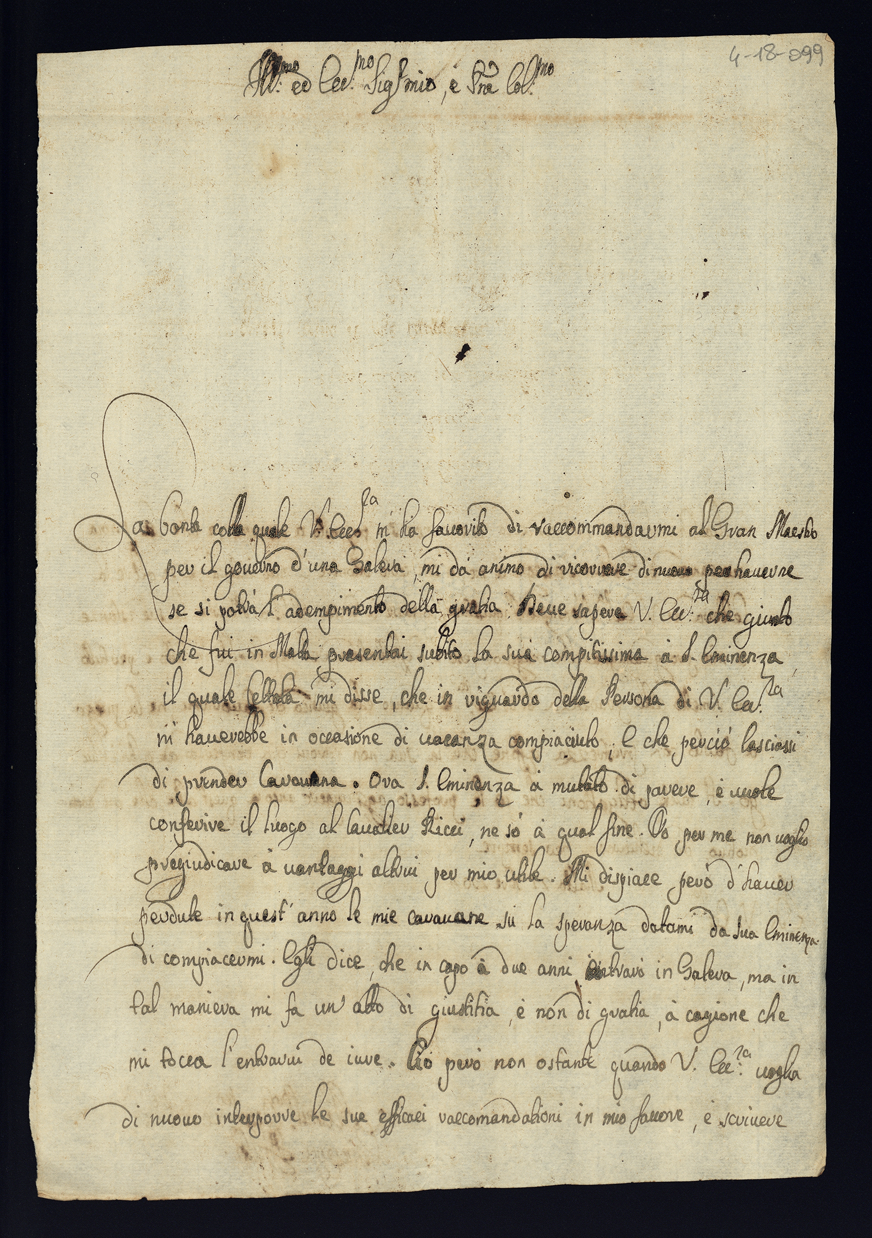 4-18-099
Ill.mo ed Ecc.mo Sig.r mio, e Pne Col.mo
La bontà colla quale V. Ecc.za m'ha favorito di raccommandarmi al Gran Maestro
per il governo d'una Galera, mi dà animo di ricorrere di nuovo per haverne
se si potrà l'adempimento della gratia. Deve sapere V. Ecc.za che giunto
che fui in Malta presentai subito la sua compitissima à S. Eminenza,
il quale lettala mi disse, che in riguardo della Persona di V. Ecc.za
m'haverebbe in occasione di vacanza compiaciuto, e che perciò lasciassi
di prender Caravana. Ora S. Eminenza à mutato di parere, e vuole
conferire il luogo al Cavalier Ricci, ne sò à qual fine. Io per me non voglio
pregiudicare à vantaggi altrui per mio utile. Mi dispiace però d'haver
perdute in quest'anno le mie caravane sù la speranza datami da sua Eminenza
di compiacermi. Egli dice, che in capo à due anni entrarò in Galera, ma in
tal maniera mi fa un'atto di giustitia, e non di gratia, à cagione che
mi tocca l'entrarvi de iure. Ciò però non ostante quando V. Ecc.za voglia
di nuovo interporre le sue efficaci raccomandationi in mio favore, e scrivere